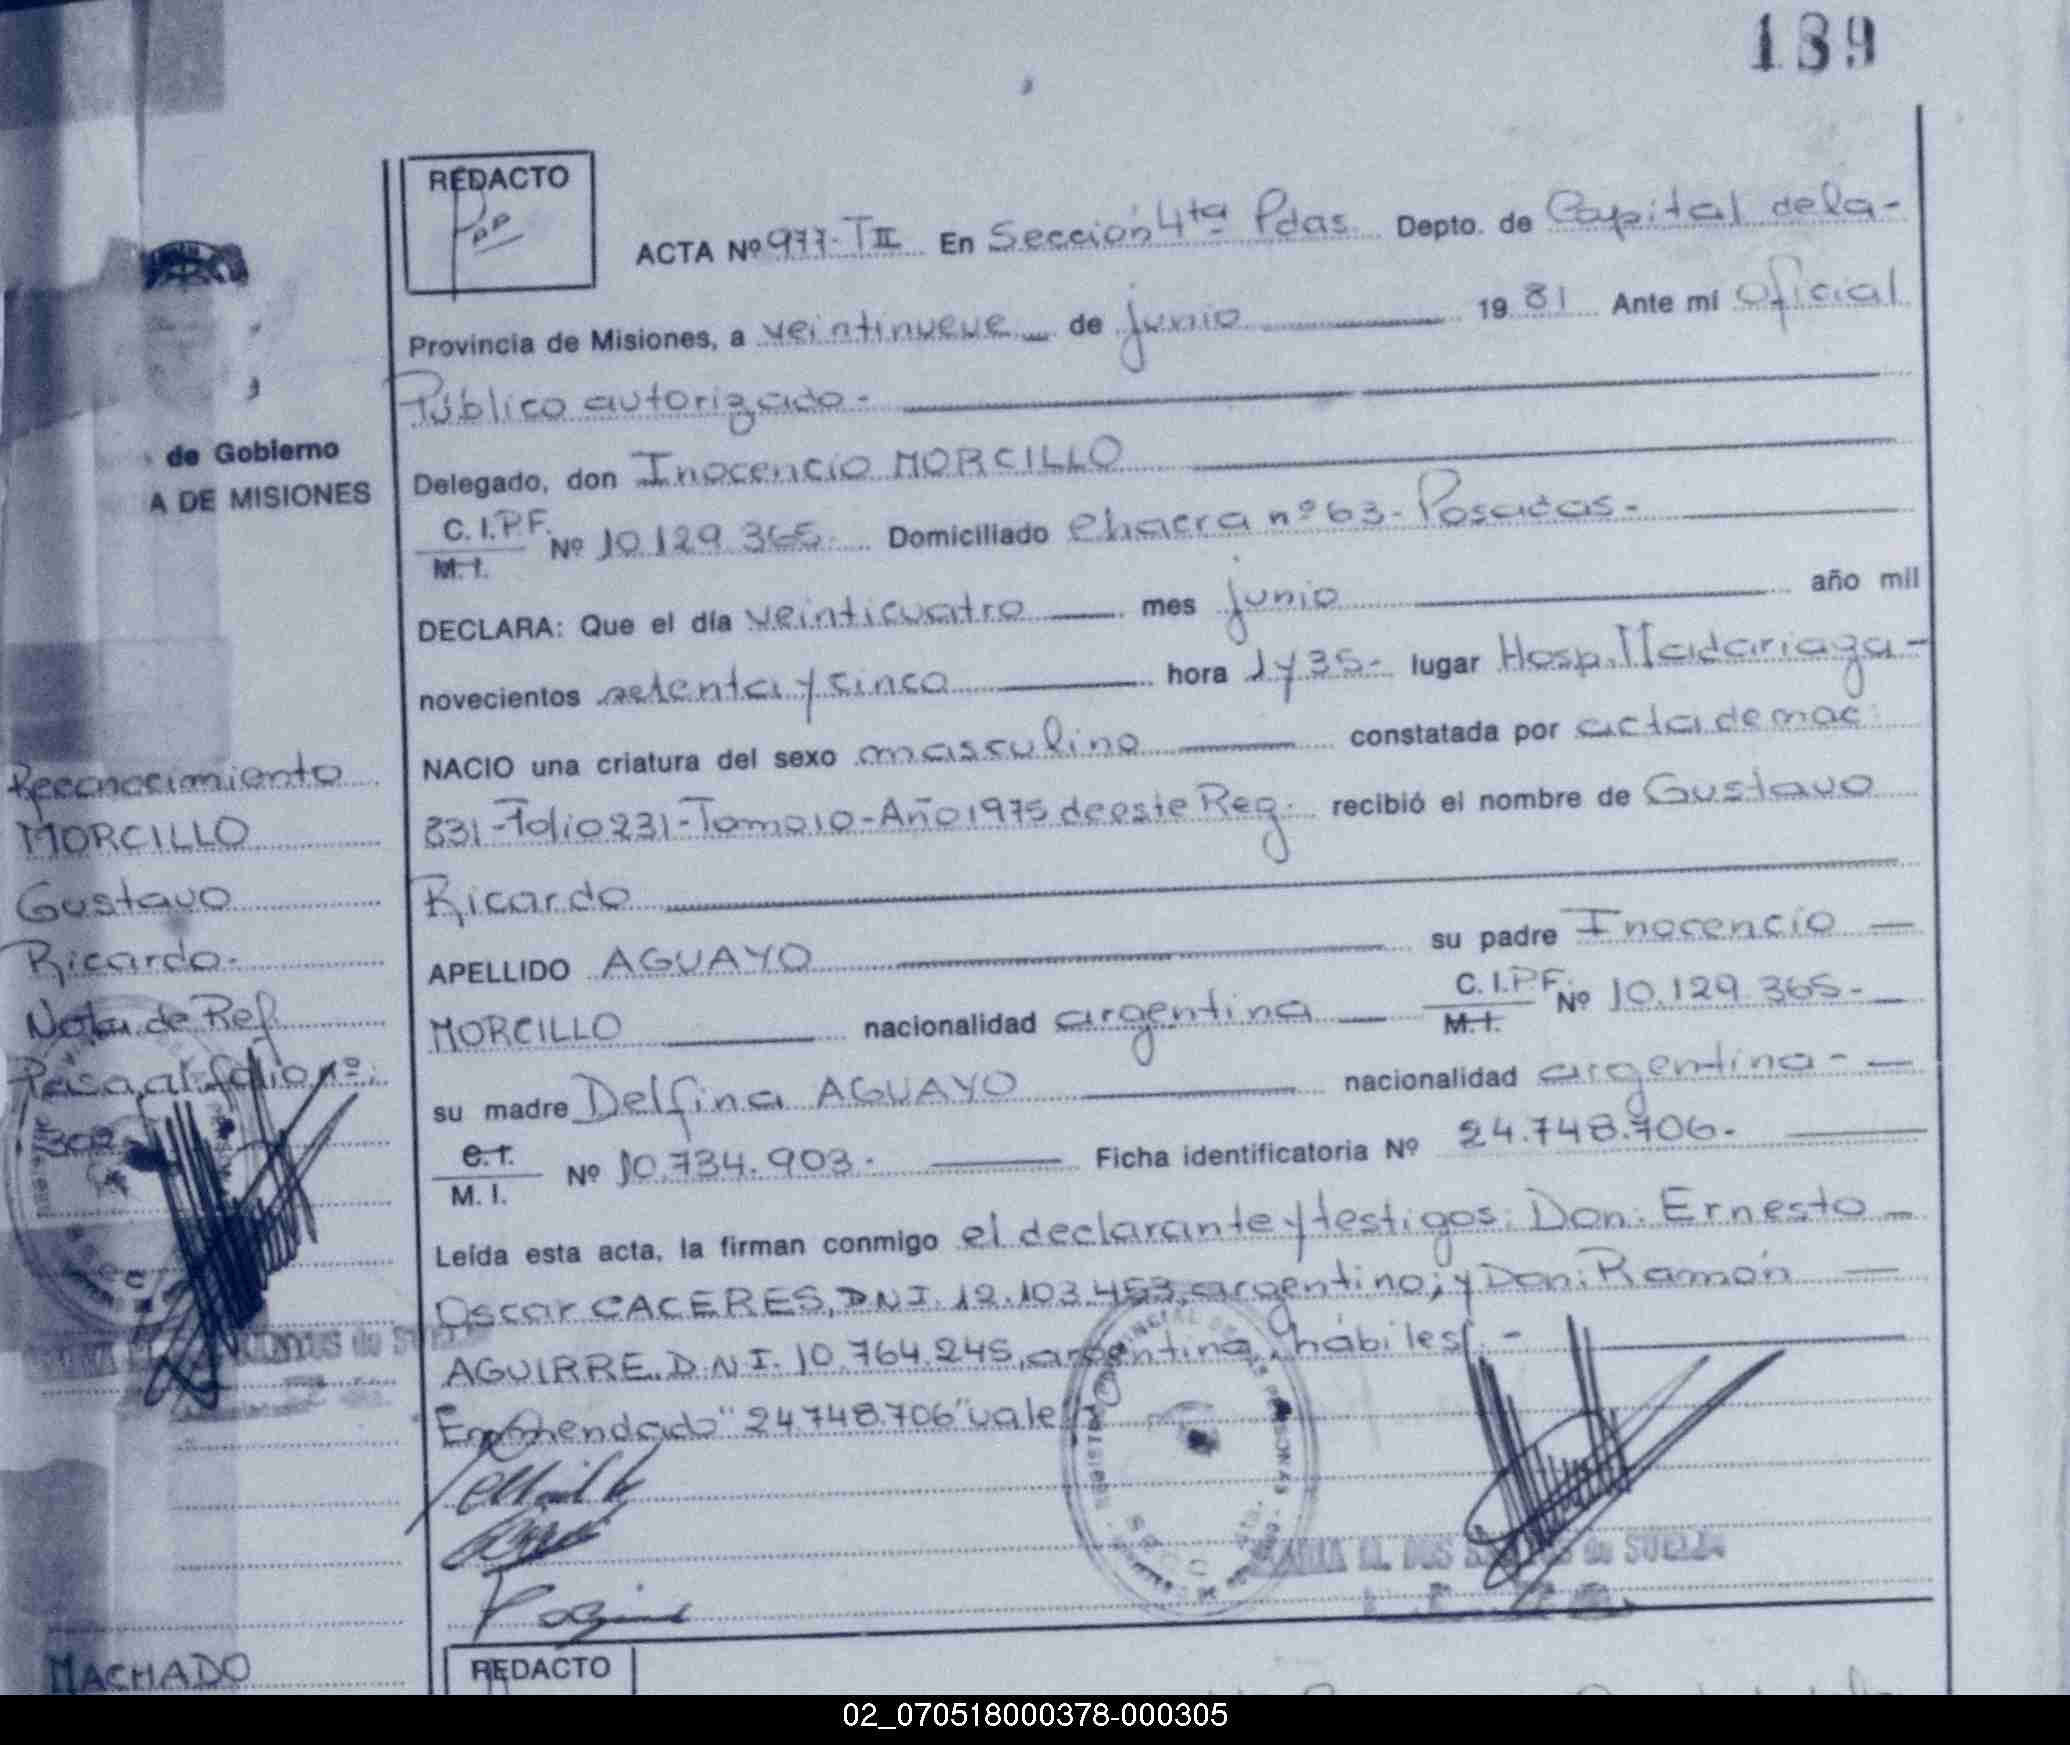 139
REDACTO
ACTA Nº 977-TII En Sección 4ta Pdas. Depto. de Capital de la-
Provincia de Misiones, a veintinueve de junio 19 81 Ante mí Oficial
Público autorizado-
de Gobierno
Delegado, don Inocencio MORCILLO
A DE MISIONES
C. I. P.F.
M. I. Nº 10.129.365- Domiciliado Chacra nº 63- Posadas-
DECLARA: Que el día veinticuatro mes junio año mil
novecientos setenta y cinco hora 1 y 35- lugar Hosp. Madariaga-
NACIO una criatura del sexo masculino constatada por acta de nac.
831-Folio 231-Tomo 10-Año 1975 de este Reg. recibió el nombre de Gustavo
Ricardo
APELLIDO AGUAYO su padre Inocencio
MORCILLO nacionalidad argentina C. I. P.F. M. I. Nº 10.129.365-
su madre Delfina AGUAYO nacionalidad argentina-
C. I.
M. I. Nº 10.734.903- Ficha identificatoria Nº 24.748.706-
Leída esta acta, la firman conmigo el declarante y testigos: Don: Ernesto
Oscar CACERES, DNI. 12.103.453, argentino; y Don: Ramón
AGUIRRE. D.N.I. 10.764.245, argentino, hábiles.-
Enmendado "24.748.706" vale
Reconocimiento
MORCILLO
Gustavo
Ricardo-
Nota de Ref.
Pasa al folio nº:
302
MARIA M. DOS SANTOS de SUELDO
MACHADO
REDACTO
02_070518000378-000305